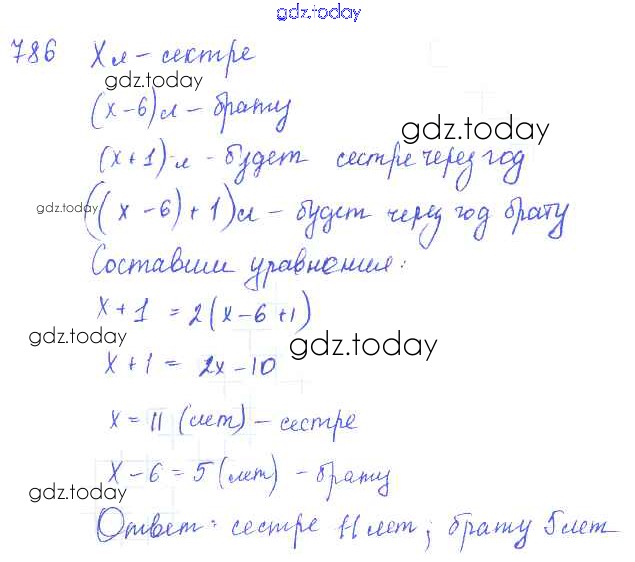 gdz.today
786 Х л - сестре
gdz.today
(х-6) л - брату
gdz.today
(х+1) л - будет сестре через год
gdz.today
((х-6)+1) л - будет через год брату
Составим уравнения:
х+1 = 2(х-6+1)
gdz.today
gdz.today
х+1 = 2х-10
х = 11 (лет) - сестре
х-6 = 5 (лет) - брату
gdz.today
gdz.today
Ответ: сестре 11 лет; брату 5 лет